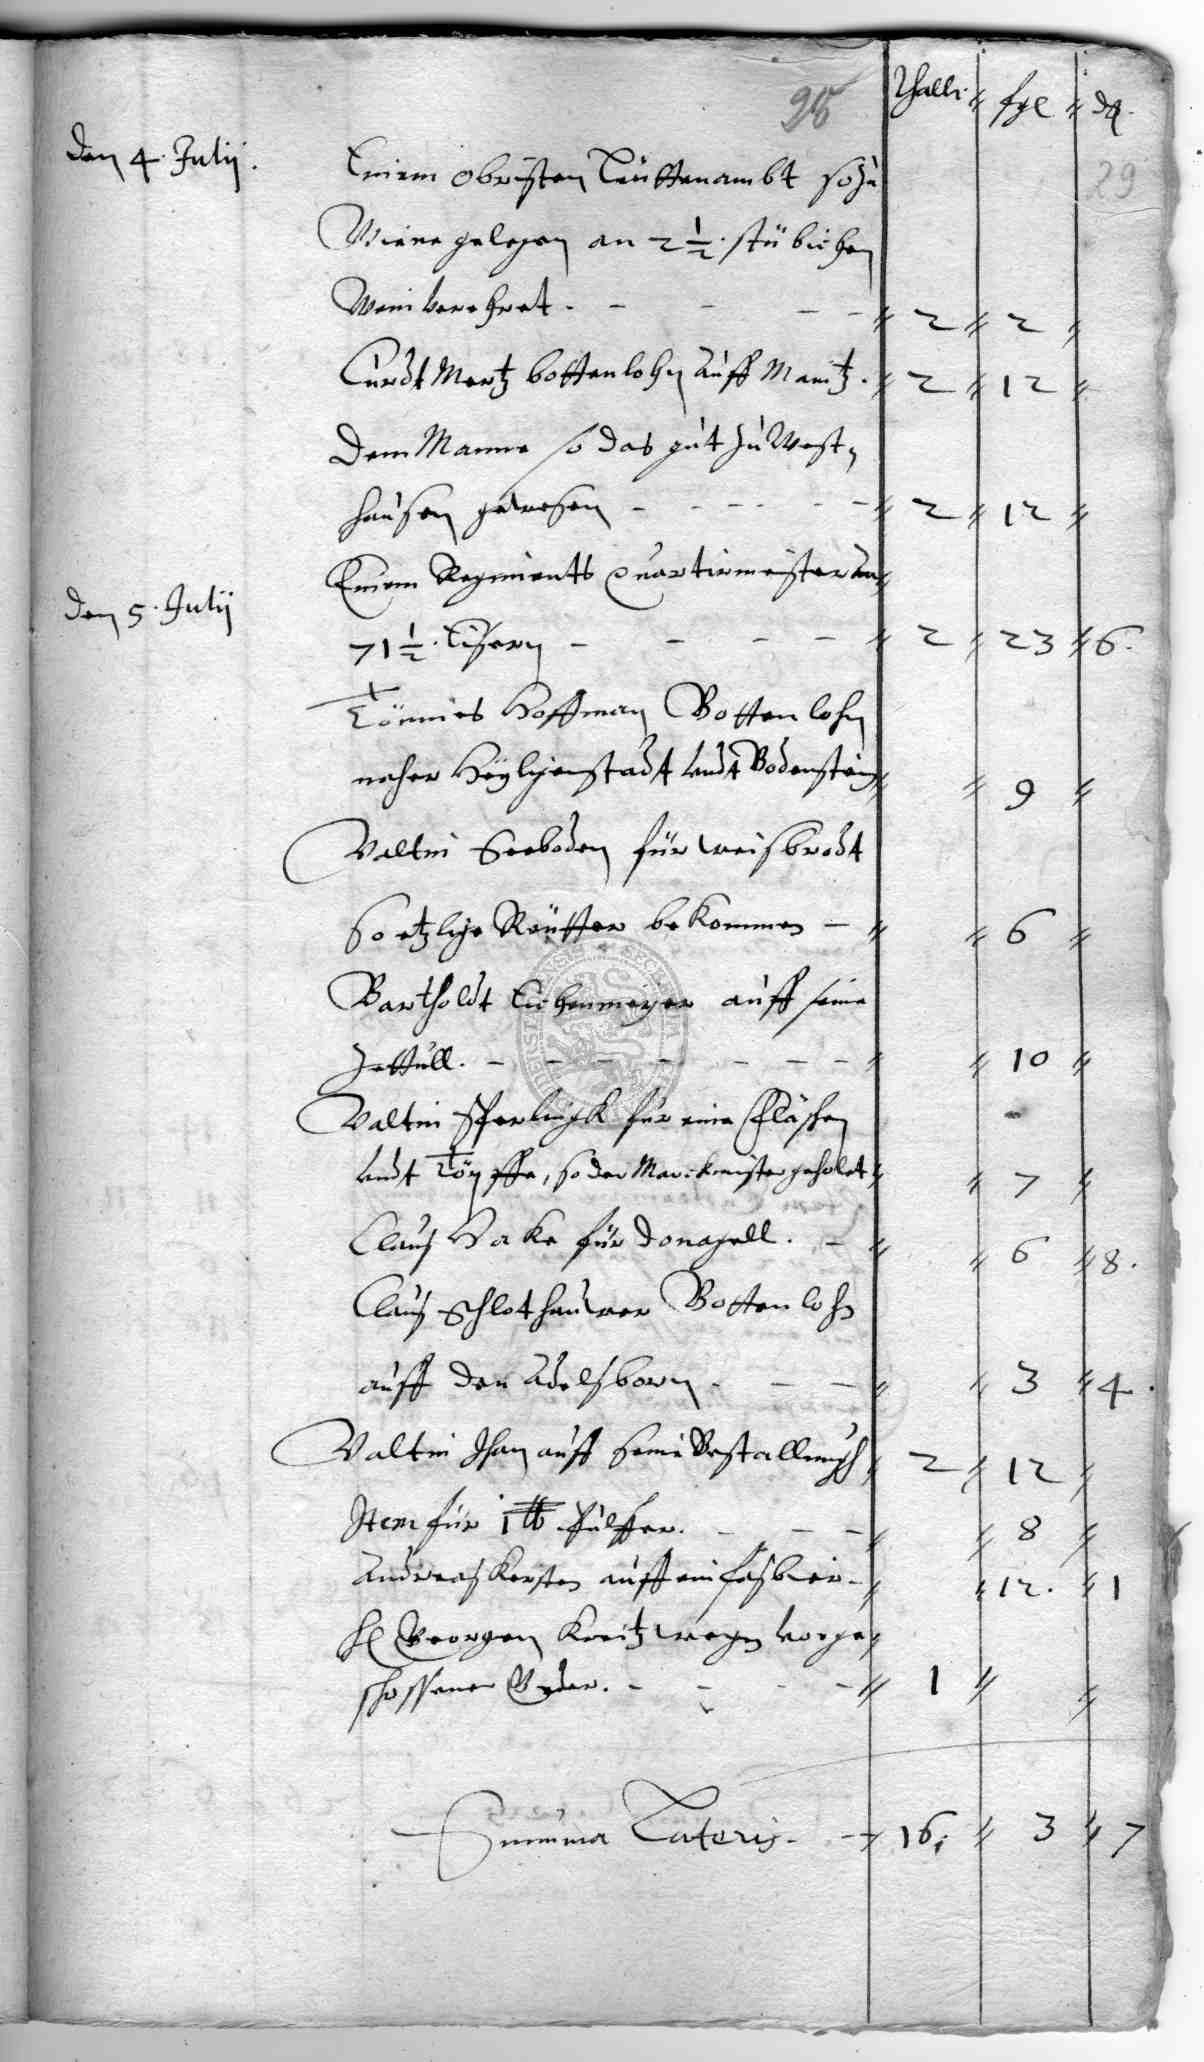 Thall: fgl d
25
29
den 4. Julij.
Einem Obristen Leuttenambt so zu
gelegen an 2 1/2. stübichen
Wein verehret. - - - - 2 2
Curdt Mertz bottenlohn auff Maintz. 2 12
Dem Manne so das gut zu West-
hausen gewesen - - - - 2 12
den 5. Julij
Einem Regiments Quartirmeister an
71 1/2. Eisern - - - - 2 23 6.
Tönnies Hoffman Bottenlohn
nacher Heyligenstadt undt Bodenstein 9
Valtin Seeboden für weisbrodt
so etzlige Reutter bekommen - 6
Bartholdt Eichenmeyer auff seine
Zettull. - - - - - - 10
Valtin Sperlingk für eine Fläschen
undt Töpffe, so der Marckmeister geholet 7
Claus Hake für Donagell. - 6 8.
Claus Schlothauwer Bottenlohn
auff den Adelsborn. - - 3 4.
Valtin Jhan auff seine Bestallungh 2 12
Item für 1 lb Pulffer. - - - 8
Andreas Kersten auff ein fasbier - 12. 1
H Georgen Kreitz wegen vorge-
schossener - - - - 1
Summa Lateris. - 16. 3 7